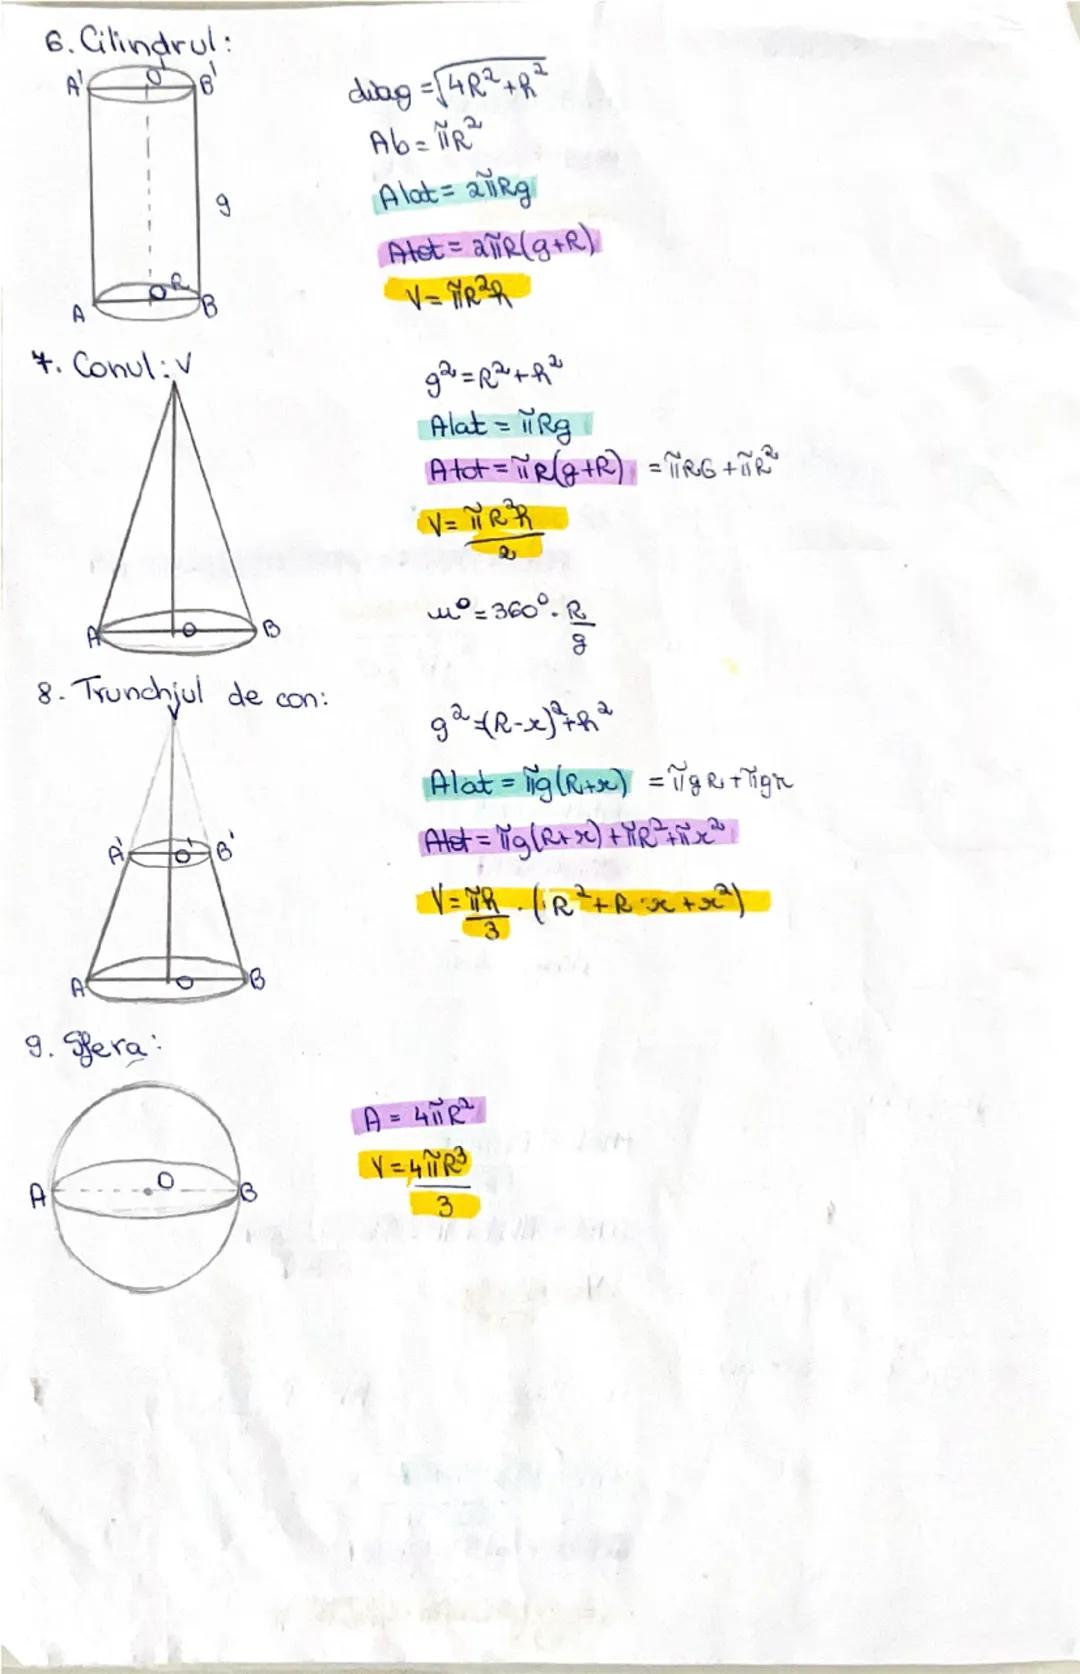 6. Cilindrul:
A' O' B'
diag = √4R²+h²
Ab = πR²
Alat = 2πRg
g
Atot = 2πR(g+R)
V = πR²h
A O R B
7. Conul: V
g² = R² + h²
Alat = πRg
Atot = πR(g+R) = πRG + πR²
V = πR²h/2
u° = 360° · R/g
A O B
8. Trunchiul de con:
V
g² = (R-r)² + h²
Alat = πg(R+r) = πgR + πgr
A' O' B'
Atot = πg(R+r) + πR² + πr²
V = πh/3 · (R² + R·r + r²)
A O B
9. Sfera:
A = 4πR²
V = 4πR³/3
A O B